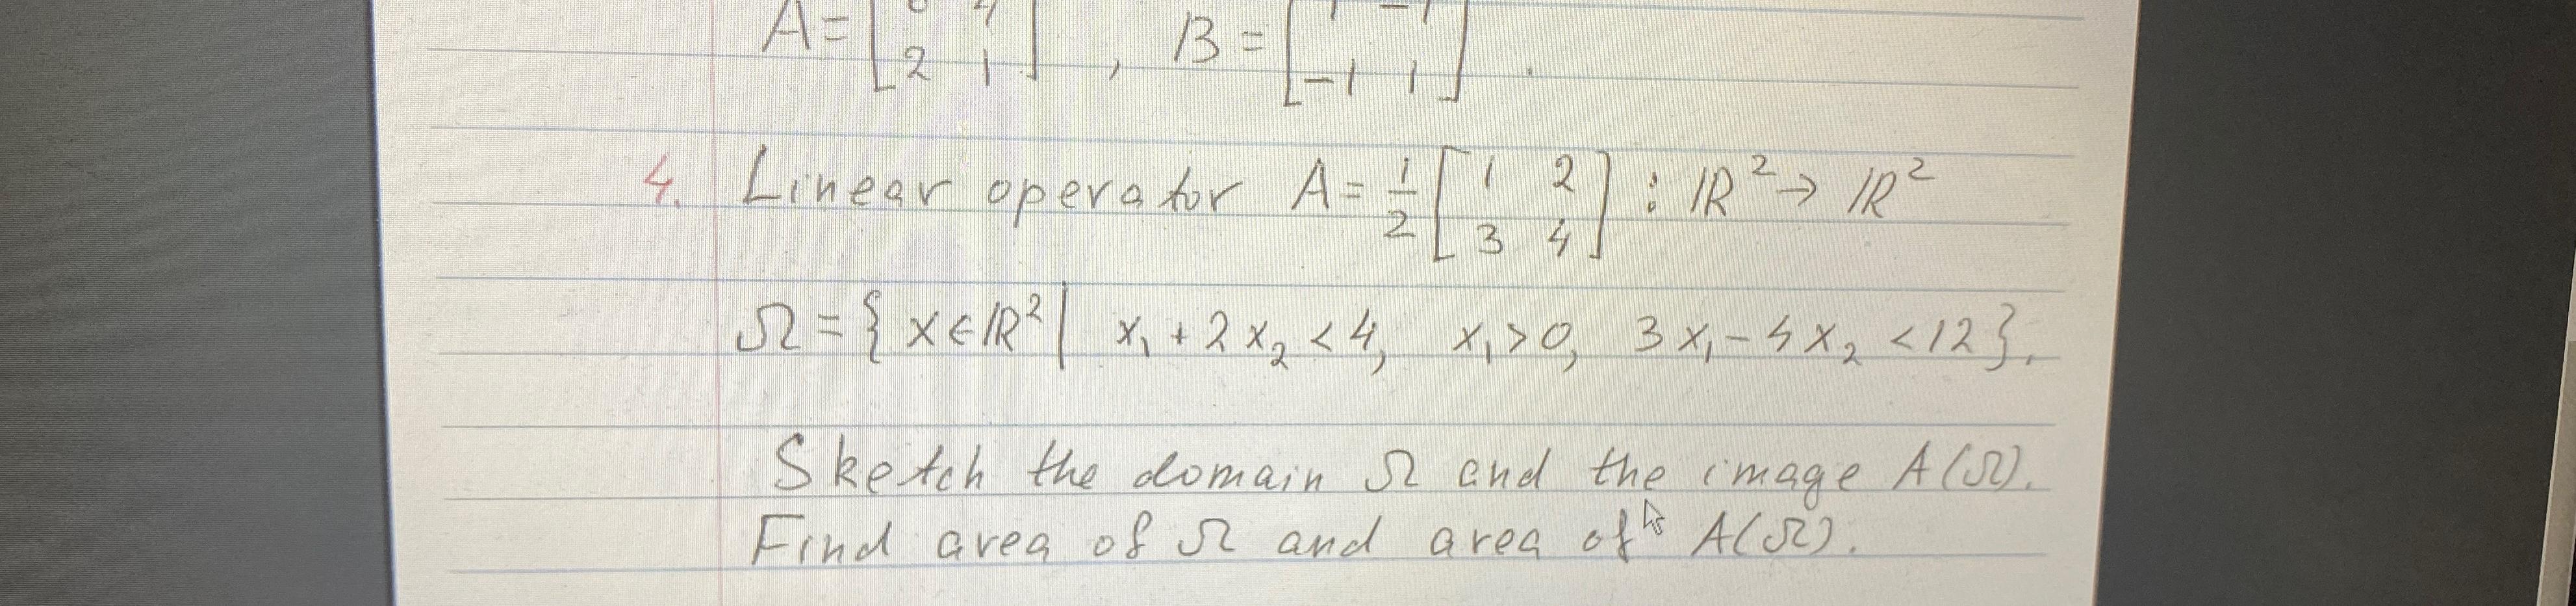 A = [ 4 2 1 ] , B = [ -1 -1 1 ] .
4. Linear operator A = 1/2 [ 1 2 3 4 ] : ℝ² → ℝ²
Ω = { x ∈ ℝ² | x₁ + 2x₂ < 4, x₁ > 0, 3x₁ - 4x₂ < 12 }.
Sketch the domain Ω and the image A(Ω).
Find area of Ω and area of A(Ω).